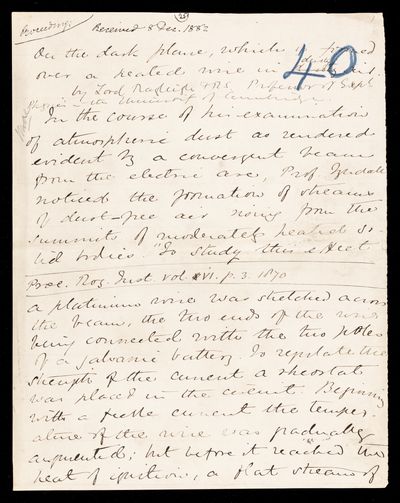 Received 8 Dec. 1882
(25)
40
On the dark plane, which is formed
over a heated wire in dusty air.
by Lord Rayleigh F.R.S. Professor of Expl
Physics in the University of Cambridge
In the course of his examination
of atmospheric dust as rendered
evident by a convergent beam
from the electric arc, Prof Tyndall
noticed the formation of streams
of dust-free air rising from the
summits of moderately heated so-
lid bodies. "To study this effect
Proc. Roy. Inst. vol VI. p. 3. 1870
a platinum wire was stretched across
the beam, the two ends of the wire
being connected with the two poles
of a galvanic battery. To regulate the
strength of the current a rheostat
was placed in the circuit. Beginning
with a feeble current the temper-
ature of the wire was gradually
augmented; but before it reached the
heat of ignition, a flat stream of